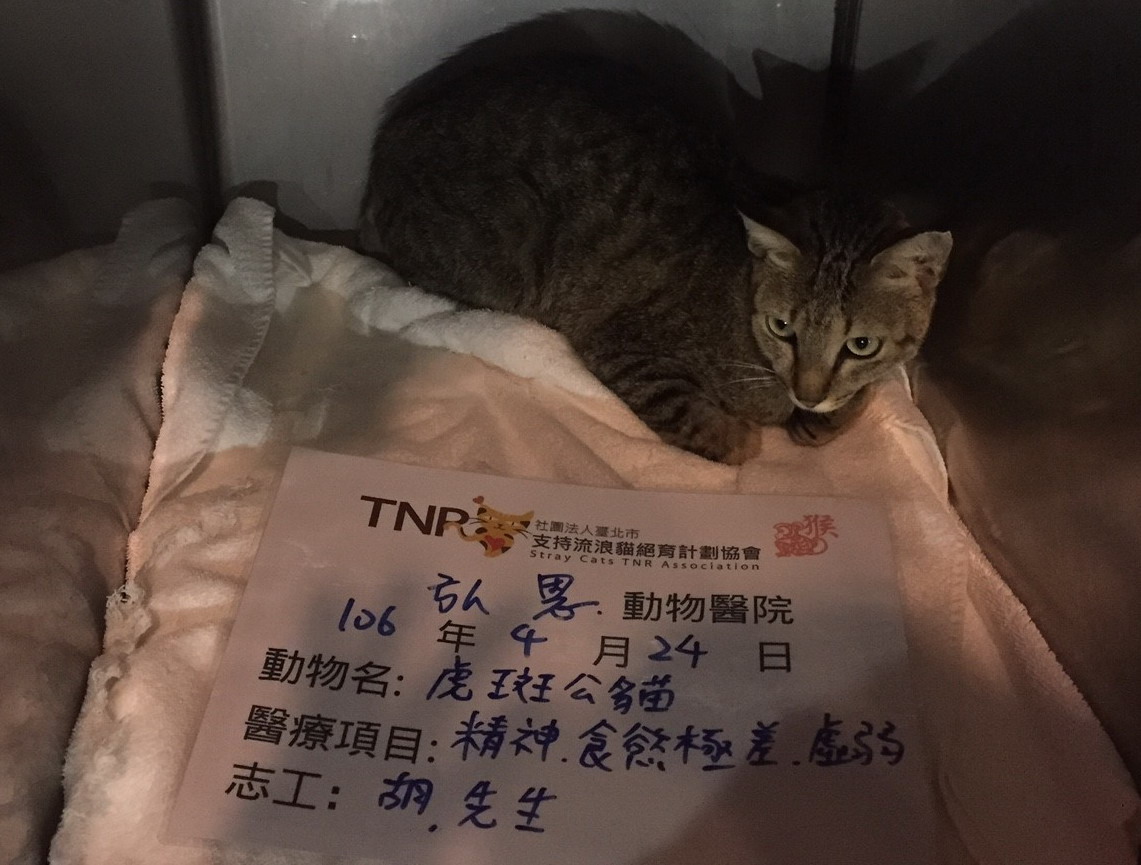 TNR
社團法人臺北市
支持流浪貓絕育計劃協會
Stray Cats TNR Association
猴
弘恩. 動物醫院
106 年 4 月 24 日
動物名: 虎斑公貓
醫療項目: 精神.食慾極差.虛弱
志工: 胡.先生